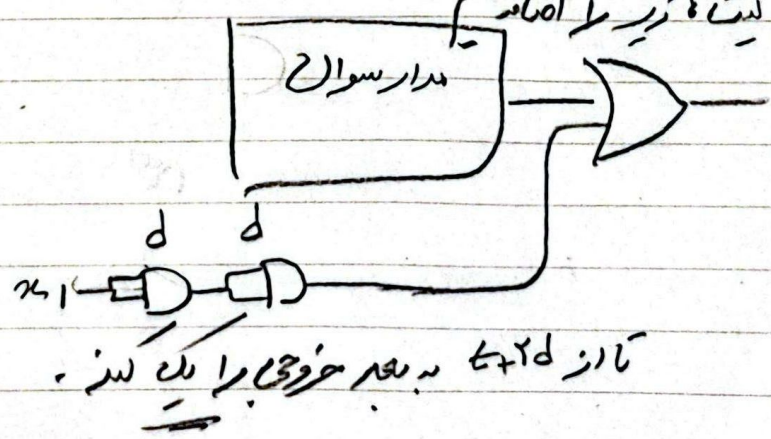 گیت‌های زیر را اضافه
مدار سوال
d d
x1
تا از t+2d به بعد خروجی را یک کند.